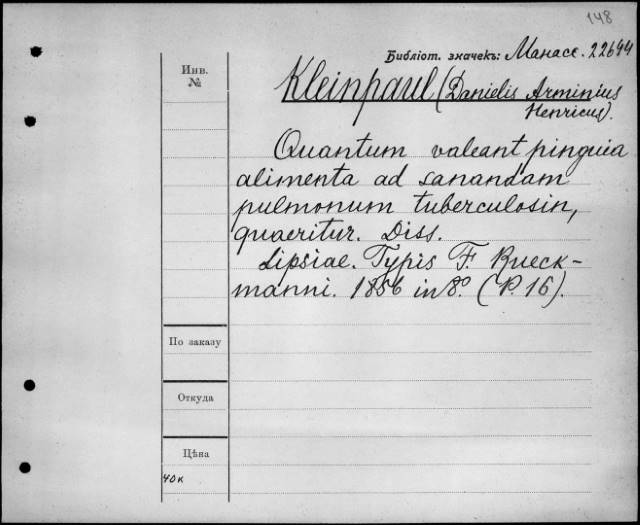 148
Библіот. значекъ: Манасс. 22694
Инв.
№
Kleinpaul (Danielis Arminius
Henricus).
Quantum valeant pinguia
alimenta ad sanandam
pulmonum tuberculosin,
quaeritur. Diss.
Lipsiae. Typis F. Rueck-
manni. 1856 in 8º. (P. 16).
По заказу
Откуда
Цѣна
40к